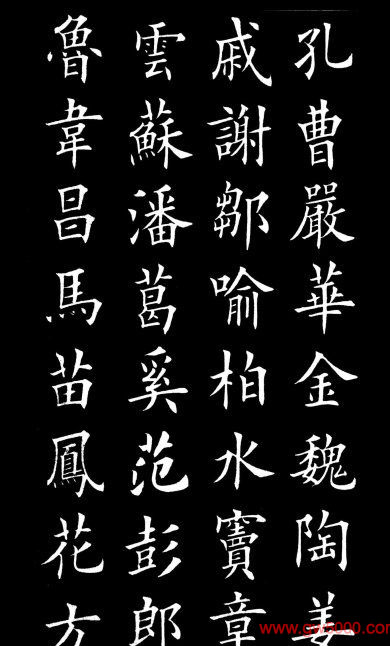 孔曹嚴華金魏陶姜
戚謝鄒喻柏水竇章
雲蘇潘葛奚范彭郎
魯韋昌馬苗鳳花方